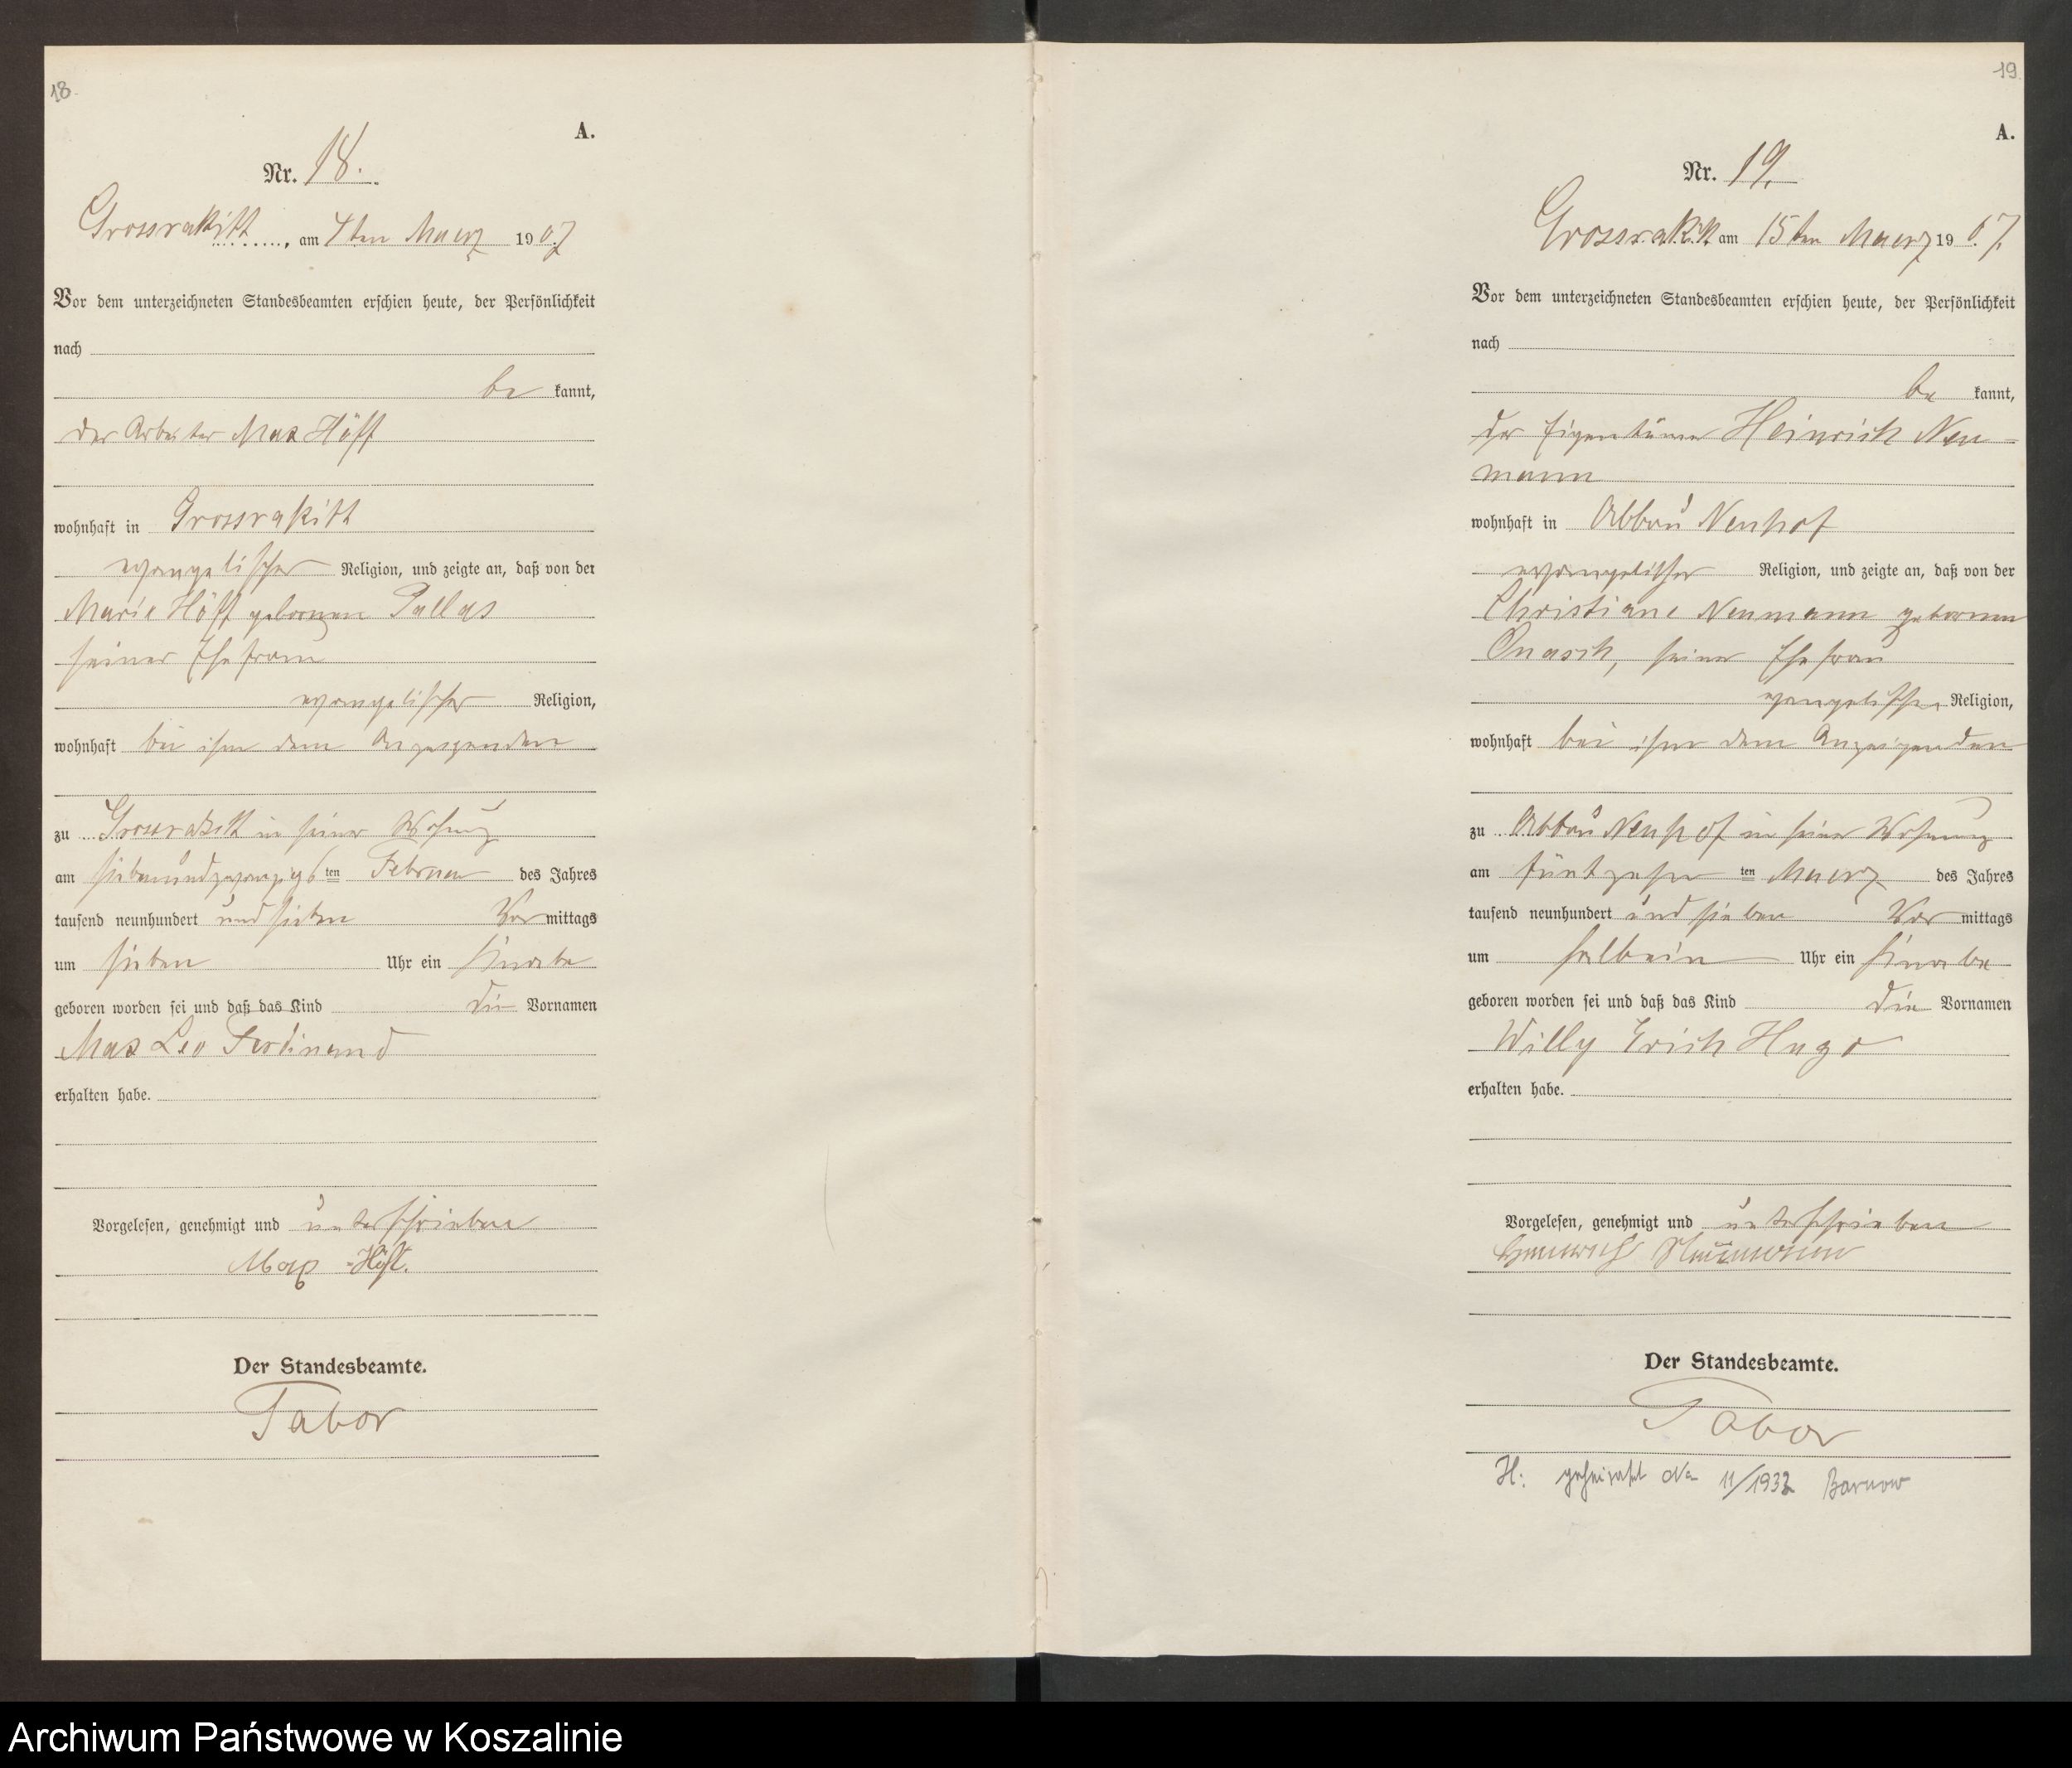 18.
A.
Nr. 18.
Grossrakitt, am 4ten Maerz 1907
Vor dem unterzeichneten Standesbeamten erschien heute, der Persönlichkeit
nach
be kannt,
der Arbeiter Max Höft
wohnhaft in Grossrakitt
evangelischer Religion, und zeigte an, daß von der
Marie Höft geborenen Pallas
seiner Ehefrau
evangelischer Religion,
wohnhaft bei ihm dem Anzeigenden
zu Grossrakitt in seiner Wohnung
am siebenundzwanzigsten Februar des Jahres
tausend neunhundert und sieben Vor mittags
um sieben Uhr ein Knabe
geboren worden sei und daß das Kind die Vornamen
Max Leo Ferdinand
erhalten habe.
Vorgelesen, genehmigt und unterschrieben
Max Höft.
Der Standesbeamte.
Tabor
19.
A.
Nr. 19.
Grossrakitt am 15ten Maerz 1907.
Vor dem unterzeichneten Standesbeamten erschien heute, der Persönlichkeit
nach
be kannt,
der Eigentümer Heinrich Neu-
mann
wohnhaft in Abbau Neuhof
evangelischer Religion, und zeigte an, daß von der
Christiane Neumann geborenen
Onasch, seiner Ehefrau
evangelischer Religion,
wohnhaft bei ihm dem Anzeigenden
zu Abbau Neuhof in seiner Wohnung
am fünfzehn ten Maerz des Jahres
tausend neunhundert und sieben Vor mittags
um halb ein Uhr ein Knabe
geboren worden sei und daß das Kind die Vornamen
Willy Erich Hugo
erhalten habe.
Vorgelesen, genehmigt und unterschrieben
Heinrich Neumann
Der Standesbeamte.
Tabor
H: geheiratet No 11/1932 Barnow
Archiwum Państwowe w Koszalinie